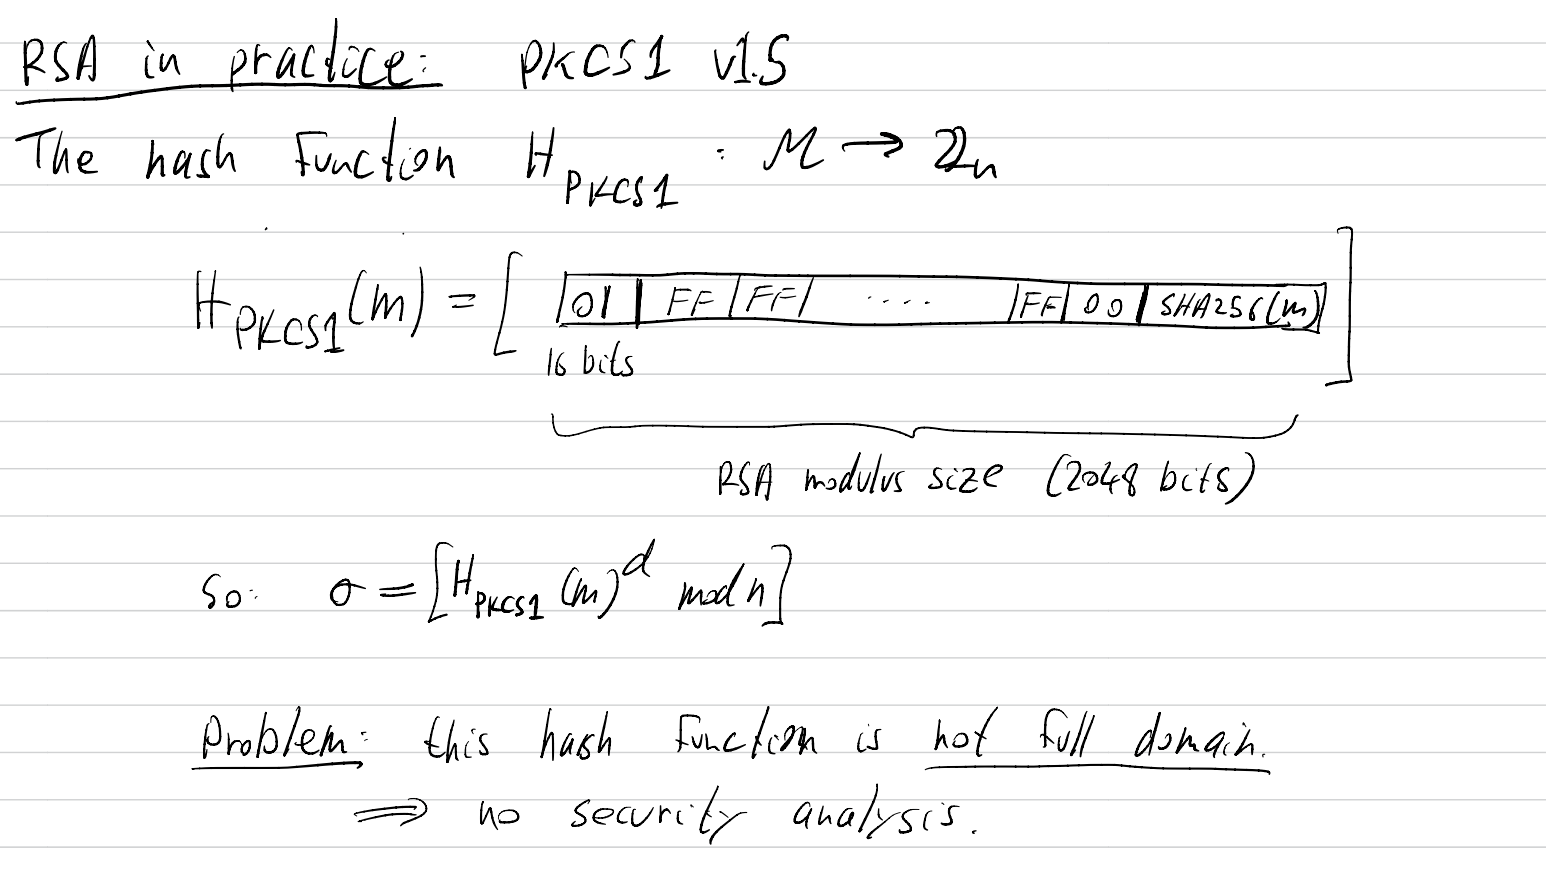 RSA in practice: PKCS1 v1.5
The hash function H_PKCS1 : M → ℤ_n
H_PKCS1(m) = [ 01 | FF | FF | .... | FF | 00 | SHA256(m) ]
16 bits
RSA modulus size (2048 bits)
So: σ = [H_PKCS1 (m)^d mod n]
Problem: this hash function is not full domain.
⟹ no security analysis.